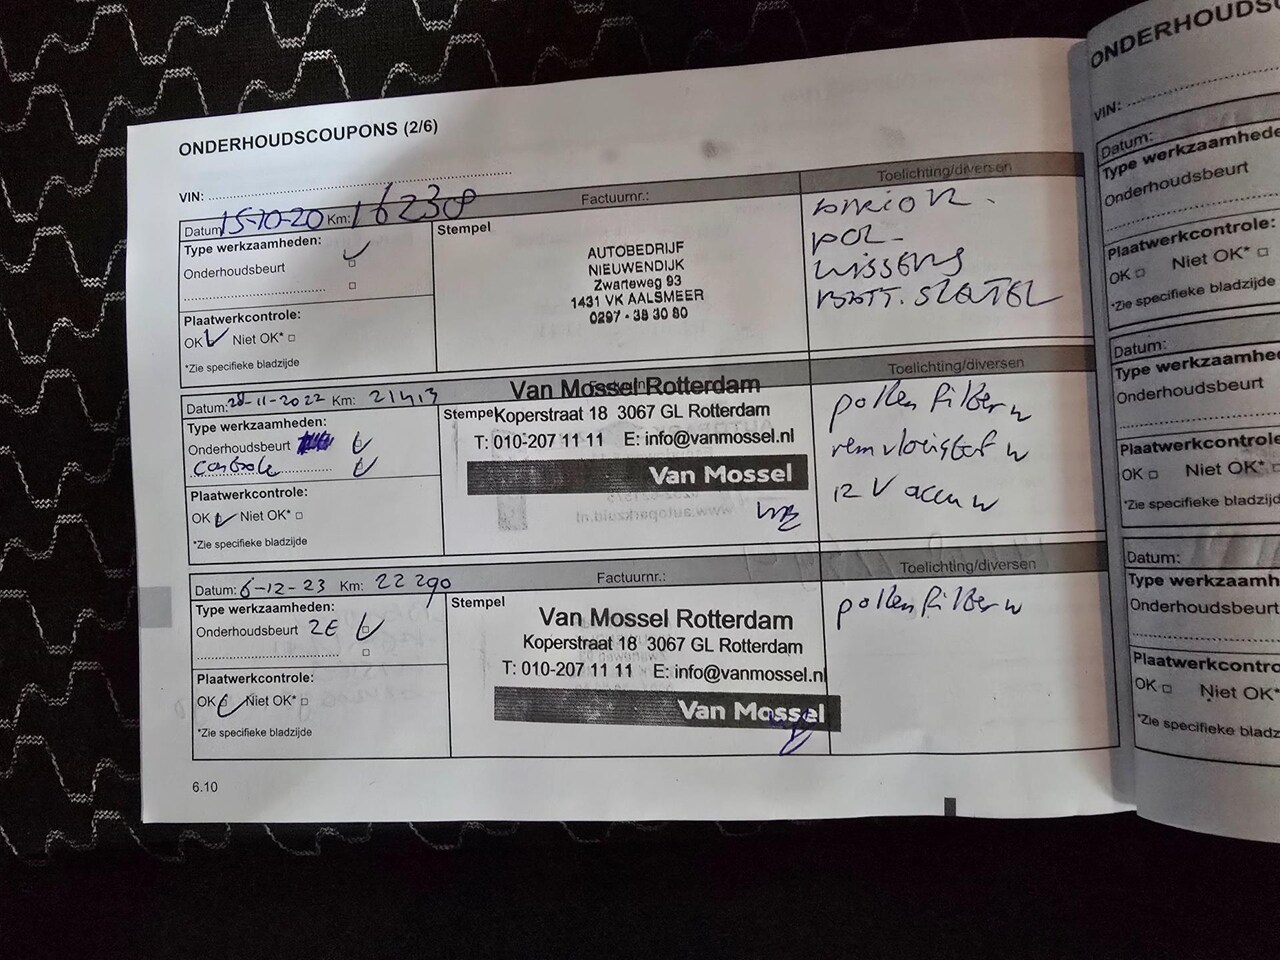 ONDERHOUDSCOUPONS (2/6)
VIN:
Datum: 15-10-20 Km: 16230
Factuurnr.:
Toelichting/diversen
Type werkzaamheden:
Onderhoudsbeurt
Stempel
AUTOBEDRIJF
NIEUWENDIJK
Zwarteweg 93
1431 VK AALSMEER
0297 - 38 30 80
POL
WISSERS
BATT. SLEUTEL
Plaatwerkcontrole:
OK Niet OK*
*Zie specifieke bladzijde
Datum: 28-11-2022 Km: 21413
Toelichting/diversen
Type werkzaamheden:
Onderhoudsbeurt
Controle
Stempel
Van Mossel Rotterdam
Koperstraat 18 3067 GL Rotterdam
T: 010-207 11 11 E: info@vanmossel.nl
Van Mossel
pollenfilter
remvloeistof
12 V accu
Plaatwerkcontrole:
OK Niet OK*
*Zie specifieke bladzijde
Datum: 6-12-23 Km: 22290
Factuurnr.:
Toelichting/diversen
Type werkzaamheden:
Onderhoudsbeurt ZE
Stempel
Van Mossel Rotterdam
Koperstraat 18 3067 GL Rotterdam
T: 010-207 11 11 E: info@vanmossel.nl
Van Mossel
pollenfilter
Plaatwerkcontrole:
OK Niet OK*
*Zie specifieke bladzijde
6.10
ONDERHOUDS
VIN:
Datum:
Type werkzaamheden:
Onderhoudsbeurt
Plaatwerkcontrole:
OK Niet OK*
*Zie specifieke bladzijde
Datum:
Type werkzaamhe
Onderhoudsbeurt
Plaatwerkcontrole
OK Niet OK*
*Zie specifieke bladzijde
Datum:
Type werkzaamh
Onderhoudsbeurt
Plaatwerkcontro
OK Niet OK*
*Zie specifieke bladz